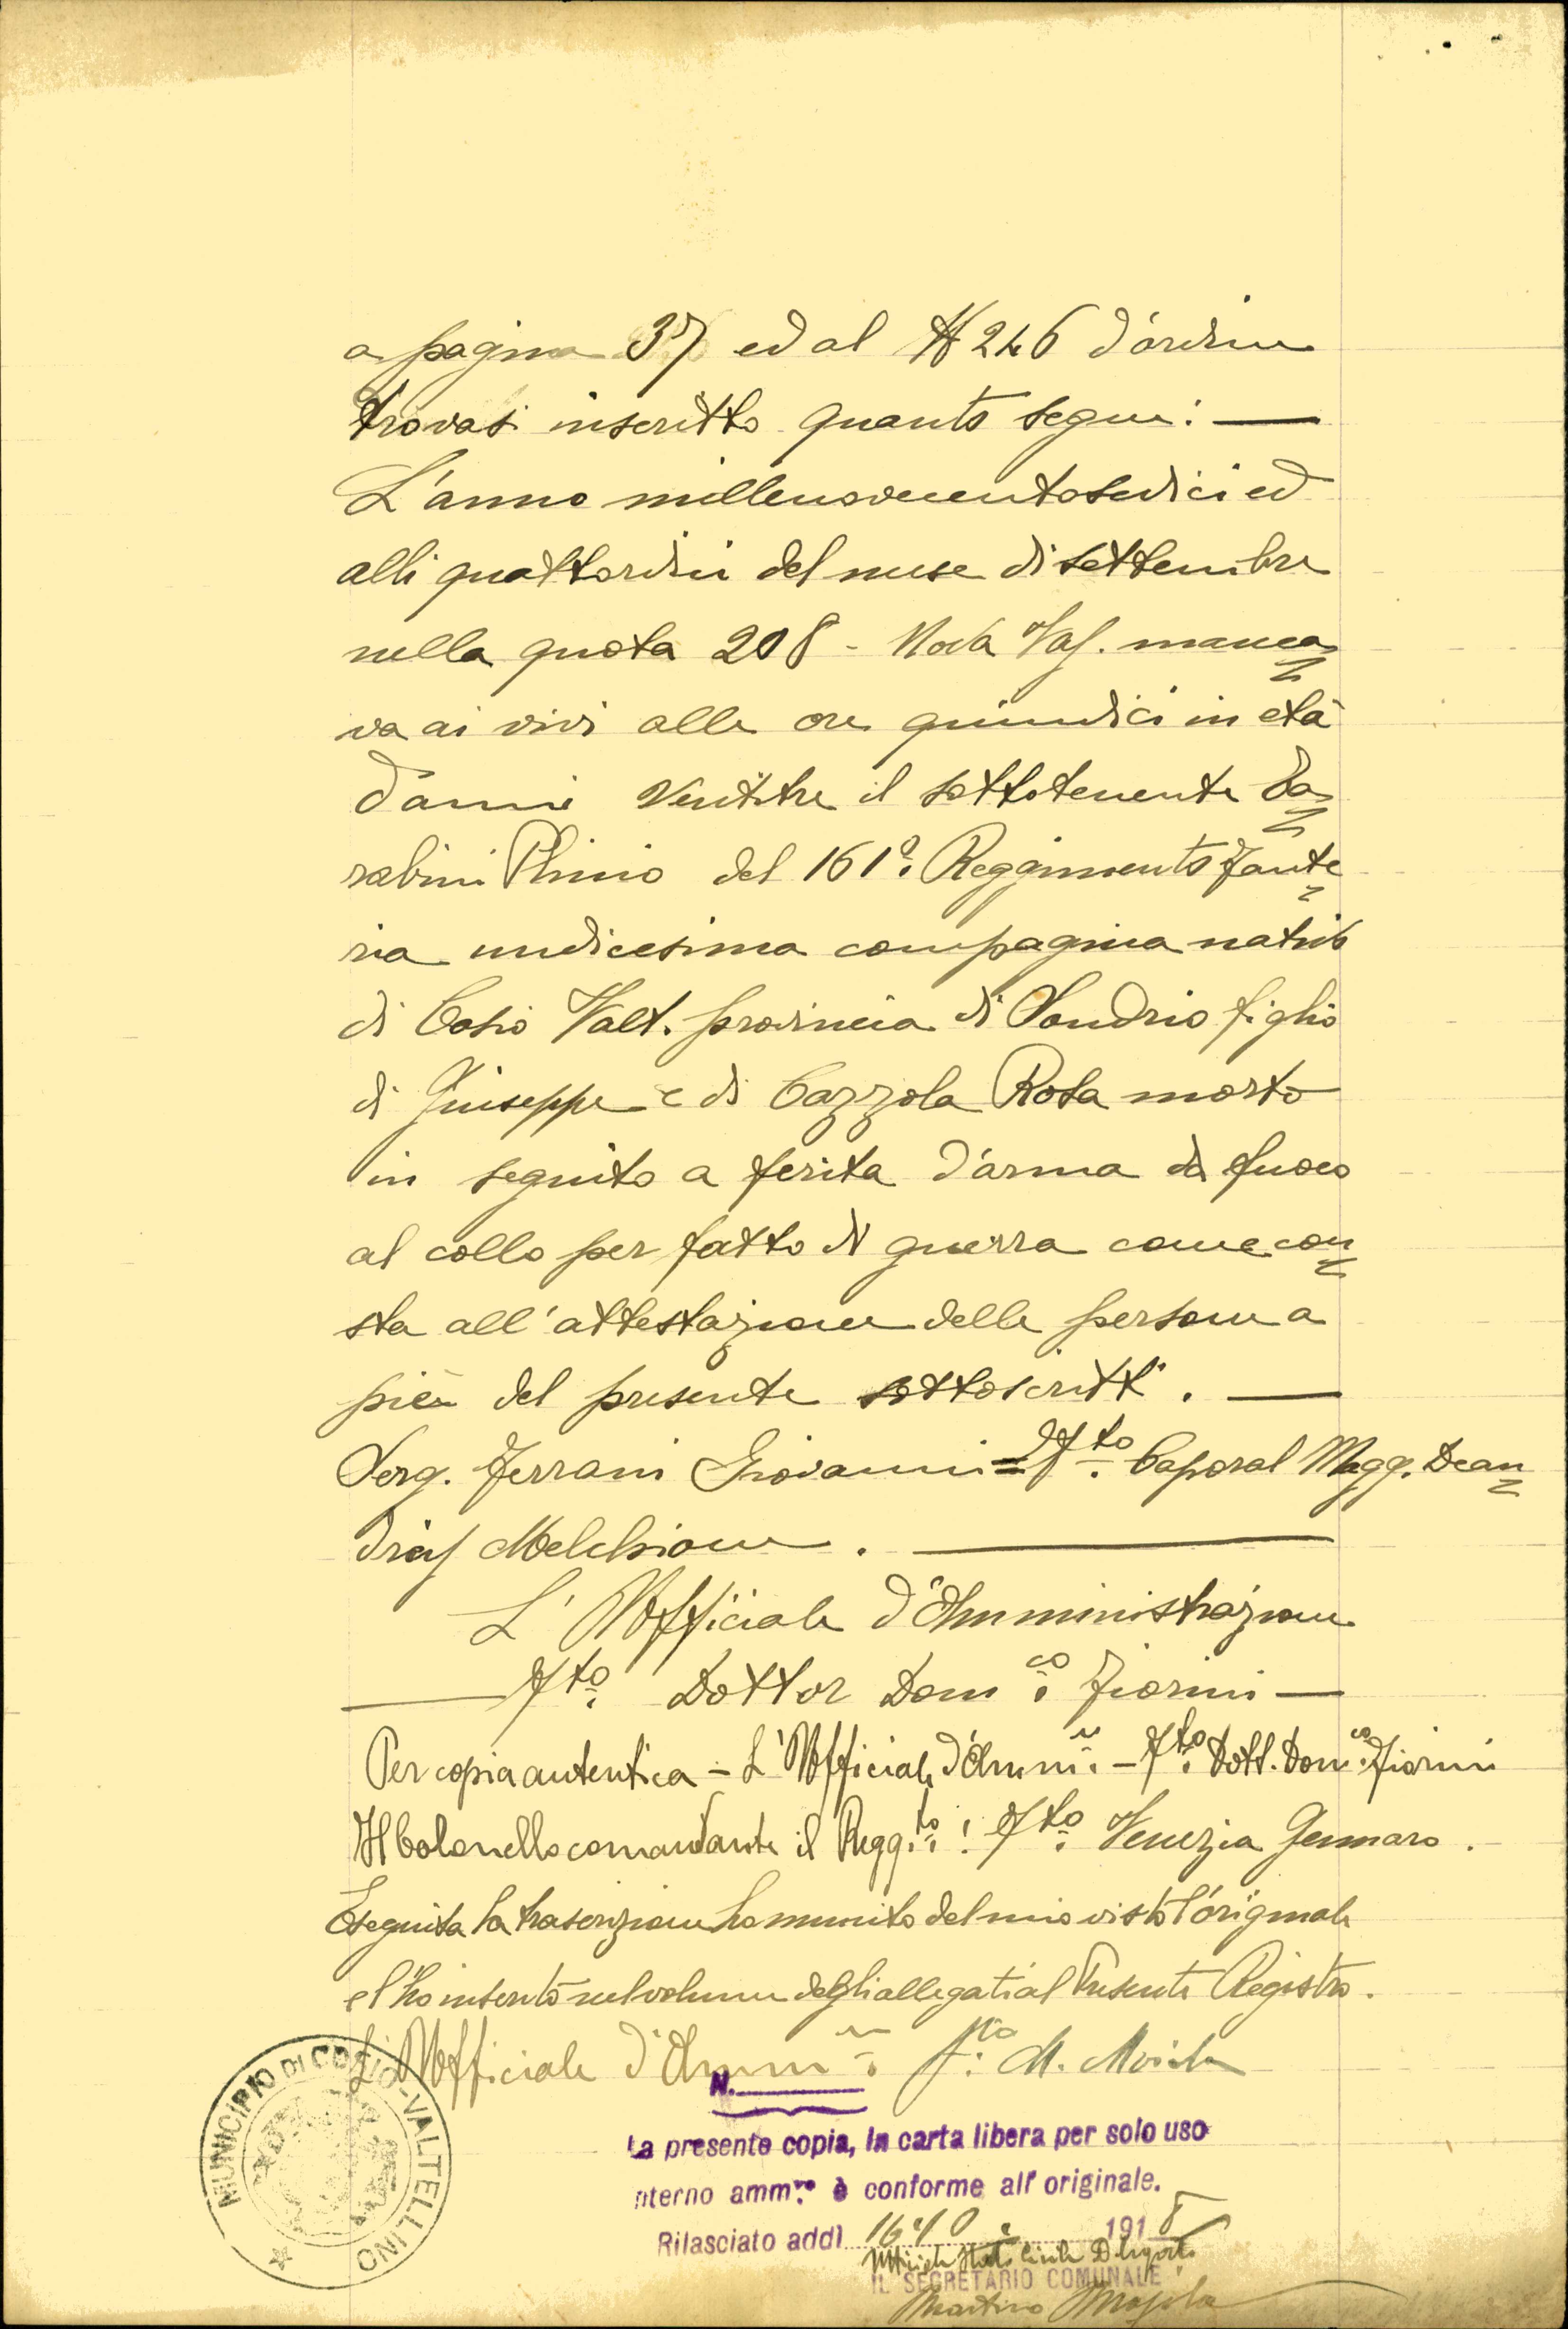 a pagina 37 ed al N 246 d'ordine
trovasi inscritto quanto segue: —
L'anno millenovecentosedici ed
alli quattordici del mese di settembre
nella quota 208 - Nova Vas. manca
va ai vivi alle ore quindici in età
d'anni ventitre il sottotenente Za
rabini Plinio del 161º Reggimento Fante
ria undicesima compagnia nativo
di Cosio Valt. provincia di Sondrio figlio
di Giuseppe e di Cazzola Rosa morto
in seguito a ferita d'arma da fuoco
al collo per fatto di guerra come con
sta all'attestazione delle persone a
piè del presente sottoscritti. —
Serg. Ferrani Giovanni = Fto Caporal Magg. Dean
dreis Melchiorre. —
L'Ufficiale d'Amministrazione
— Fto Dottor Domco Fiorini —
Per copia autentica - L'Ufficiale d'Ammne - Fto Dott. Domco Fiorini
Il Colonello comandante il Reggto: Fto Venezia Gennaro.
Eseguita la trascrizione ho munito del mio visto l'originale
e l'ho inserito nel volume degli allegati al Presente Registro.
L'Ufficiale d'Ammne fto M.
MUNICIPIO DI COSIO-VALTELLINO
N.
La presente copia, in carta libera per solo uso
nterno ammvo è conforme all'originale.
Rilasciato addì 16-10 1918
Ufficiale Stato Civile Delegato
IL SEGRETARIO COMUNALE
Martino